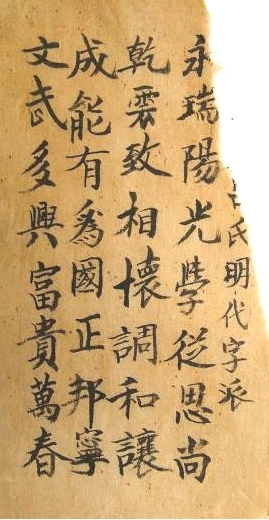 氏明代字派
永瑞陽光學從思尚
乾雲致相懷調和讓
成能有爲國正邦寧
文武多興富貴萬春